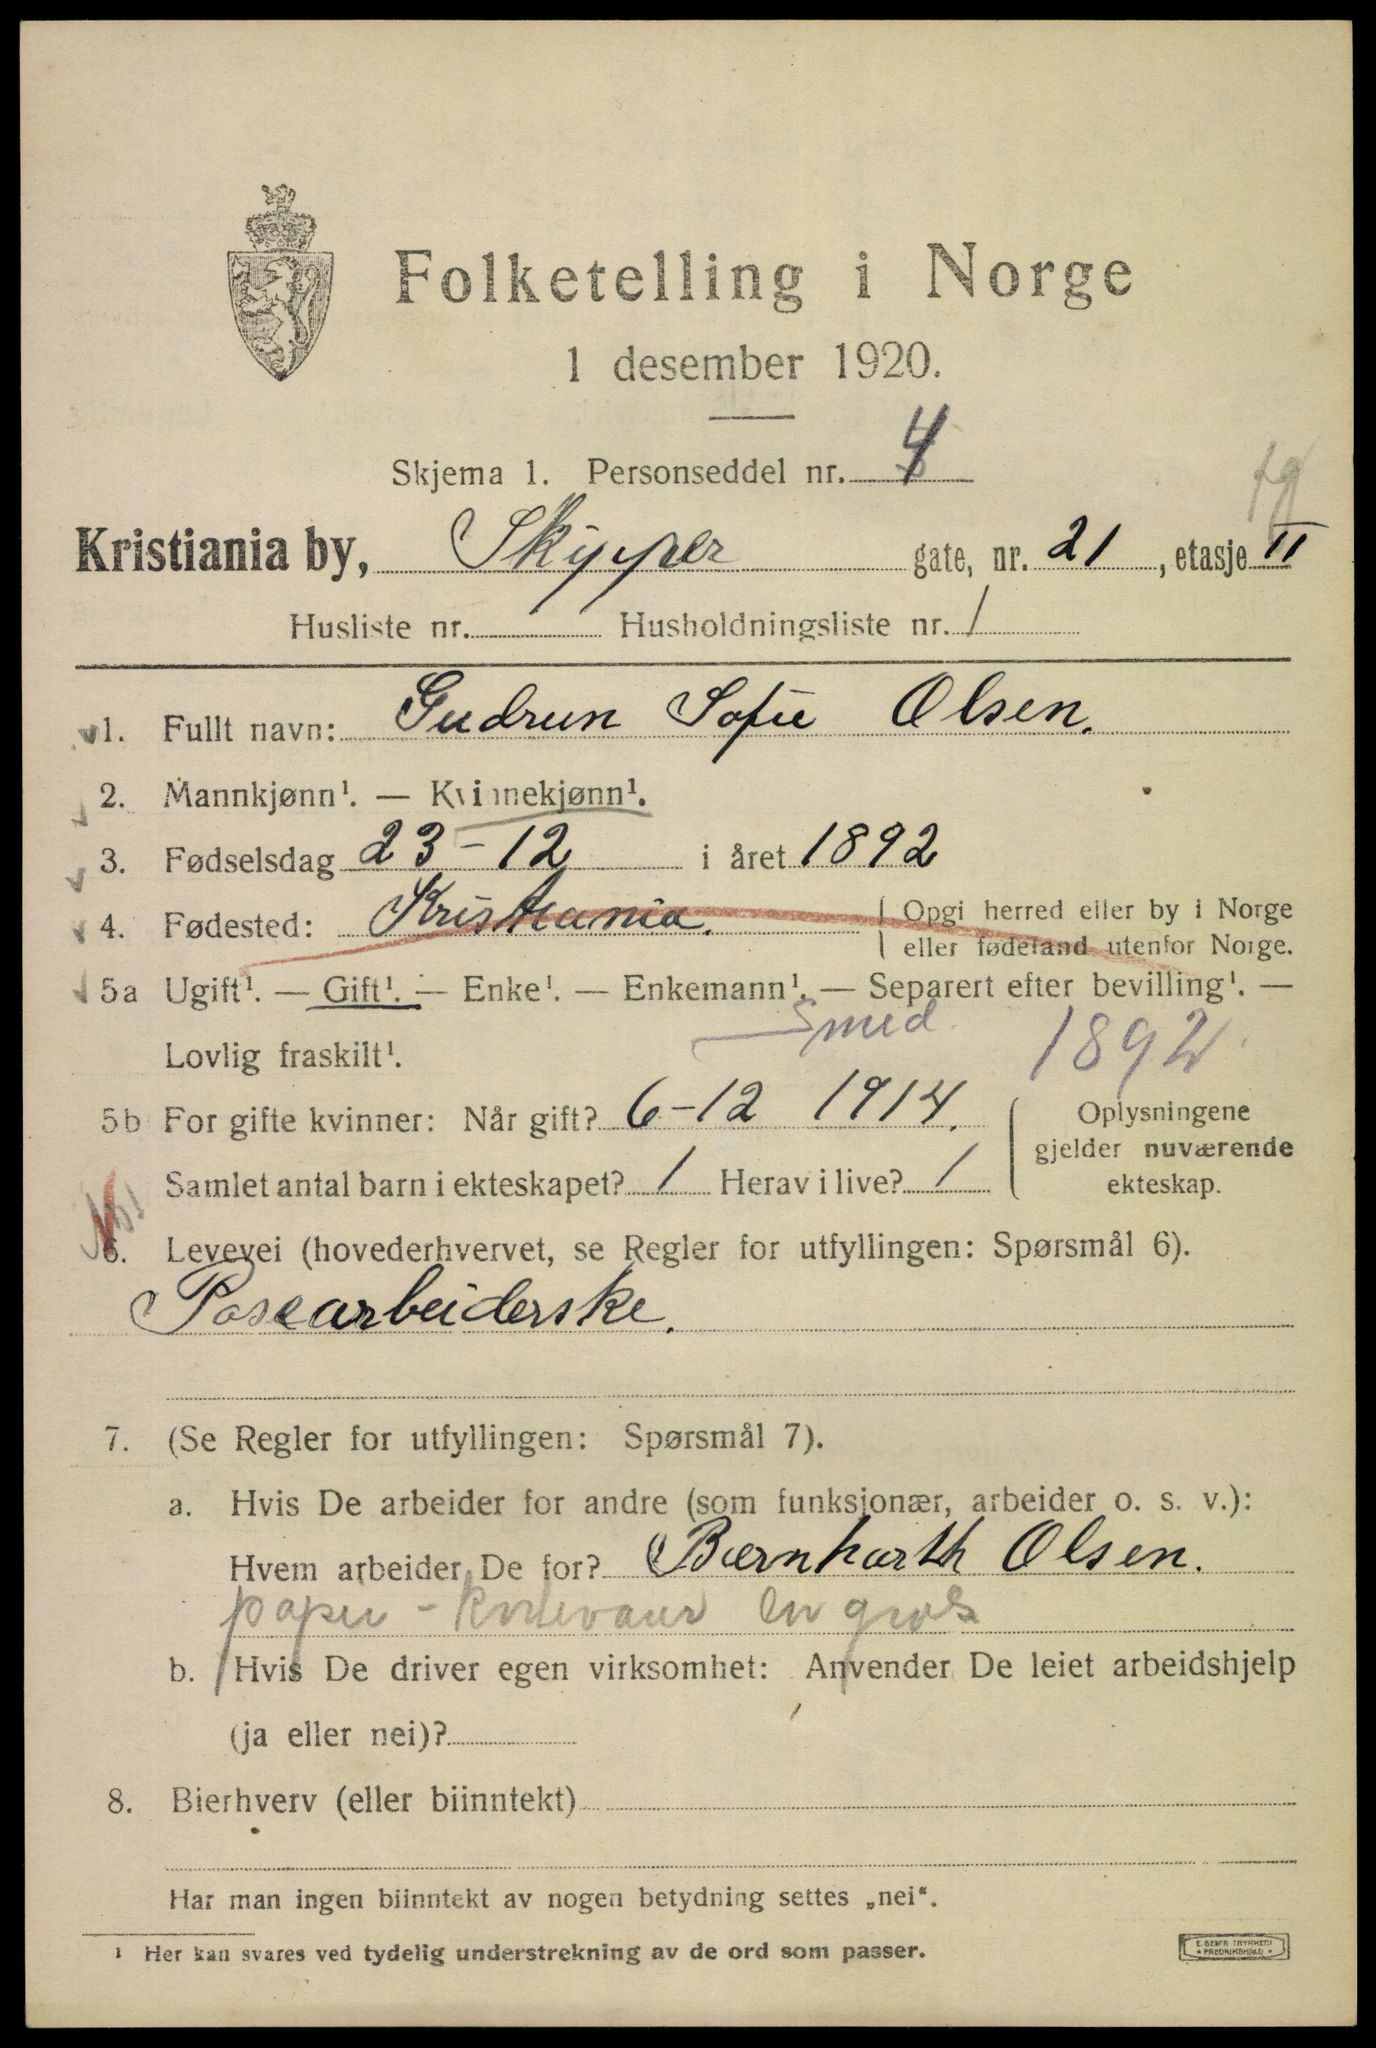 Folketelling i Norge
1 desember 1920.
Skjema 1. Personseddel nr. 4
Kristiania by, Skipper gate, nr. 21, etasje II
Husliste nr. Husholdningsliste nr. 1
1. Fullt navn: Gudrun Sofie Olsen.
2. Mannkjønn¹. — Kvinnekjønn¹.
3. Fødselsdag 23-12 i året 1892
4. Fødested: Kristiania. Opgi herred eller by i Norge
eller fødeland utenfor Norge.
5a Ugift¹. — Gift¹. — Enke¹. — Enkemann¹. — Separert efter bevilling¹. —
Smed. 1892.
Lovlig fraskilt¹.
5b For gifte kvinner: Når gift? 6-12 1914. Oplysningene
gjelder nuværende
Samlet antal barn i ekteskapet? 1 Herav i live? 1 ekteskap.
6. Levevei (hovederhvervet, se Regler for utfyllingen: Spørsmål 6).
Posearbeiderske.
7. (Se Regler for utfyllingen: Spørsmål 7).
a. Hvis De arbeider for andre (som funksjonær, arbeider o. s. v.):
Hvem arbeider De for? Bernharth Olsen.
papir - en gros
b. Hvis De driver egen virksomhet: Anvender De leiet arbeidshjelp
(ja eller nei)?
8. Bierhverv (eller biinntekt)
Har man ingen biinntekt av nogen betydning settes „nei“.
¹ Her kan svares ved tydelig understrekning av de ord som passer.
E. SEMS TRYKKERI
FREDRIKSHALD